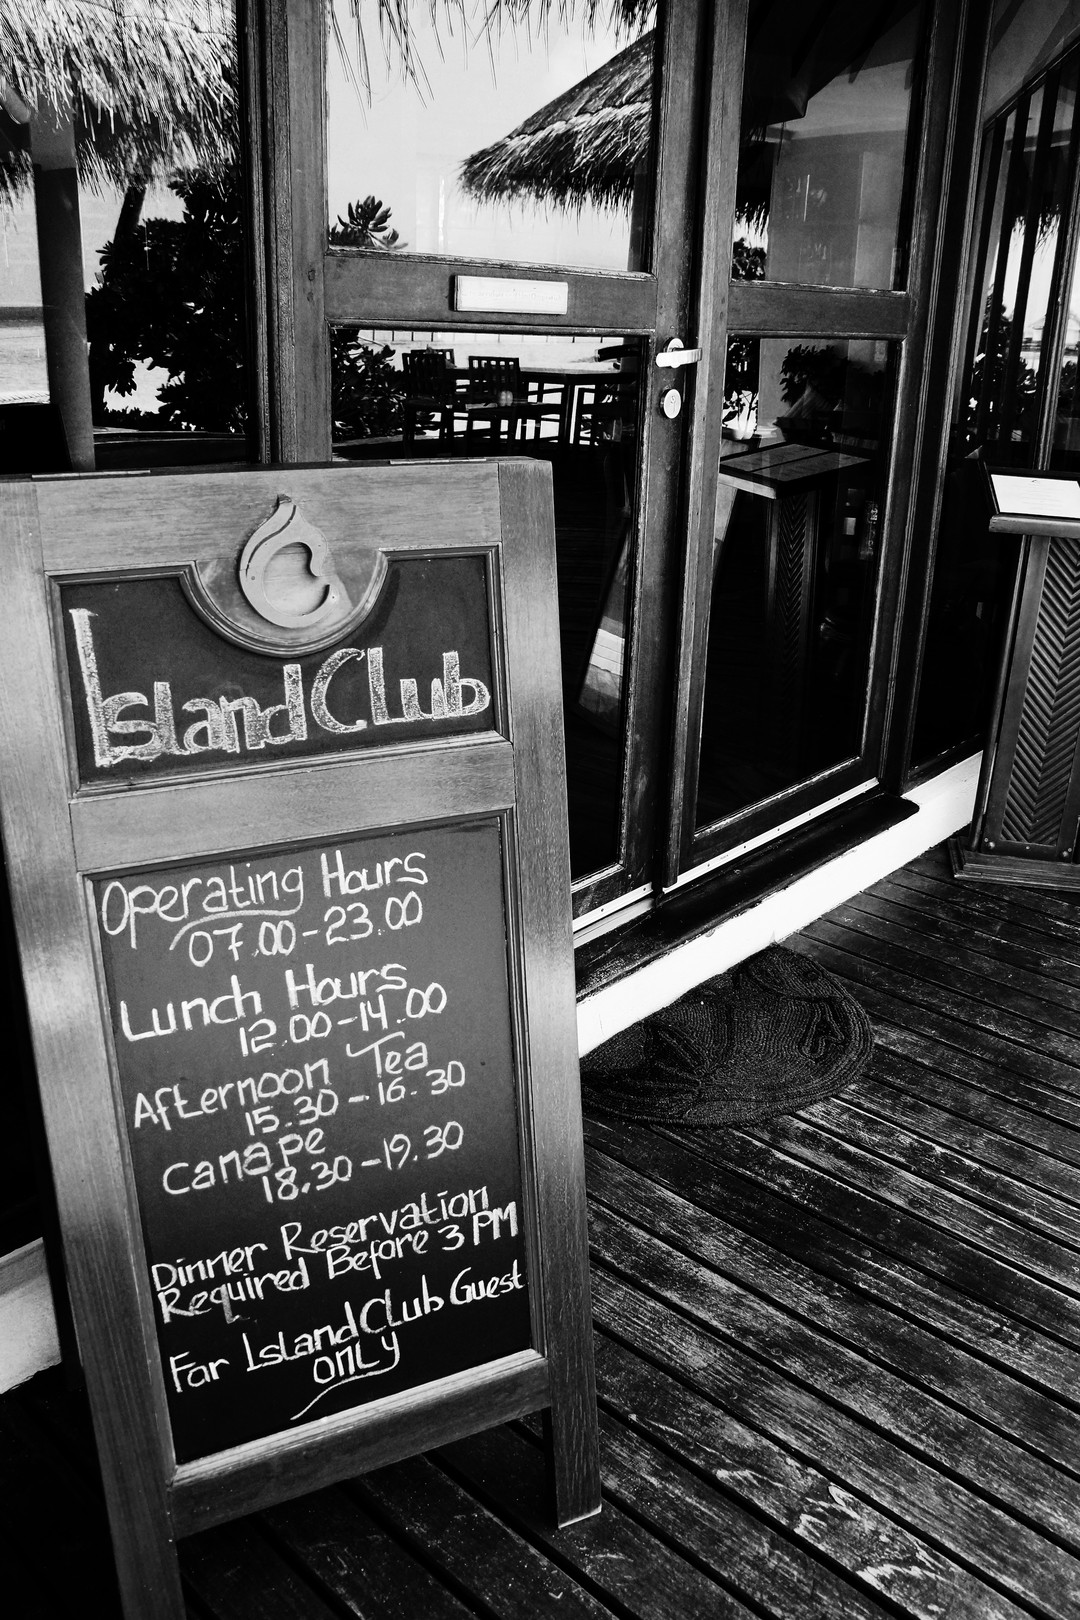 Island Club
Operating Hours
07.00-23.00
Lunch Hours
12.00-14.00
Afternoon Tea
15.30-16.30
Canape
18.30-19.30
Dinner Reservation
Required Before 3 PM
For Island Club Guest
only